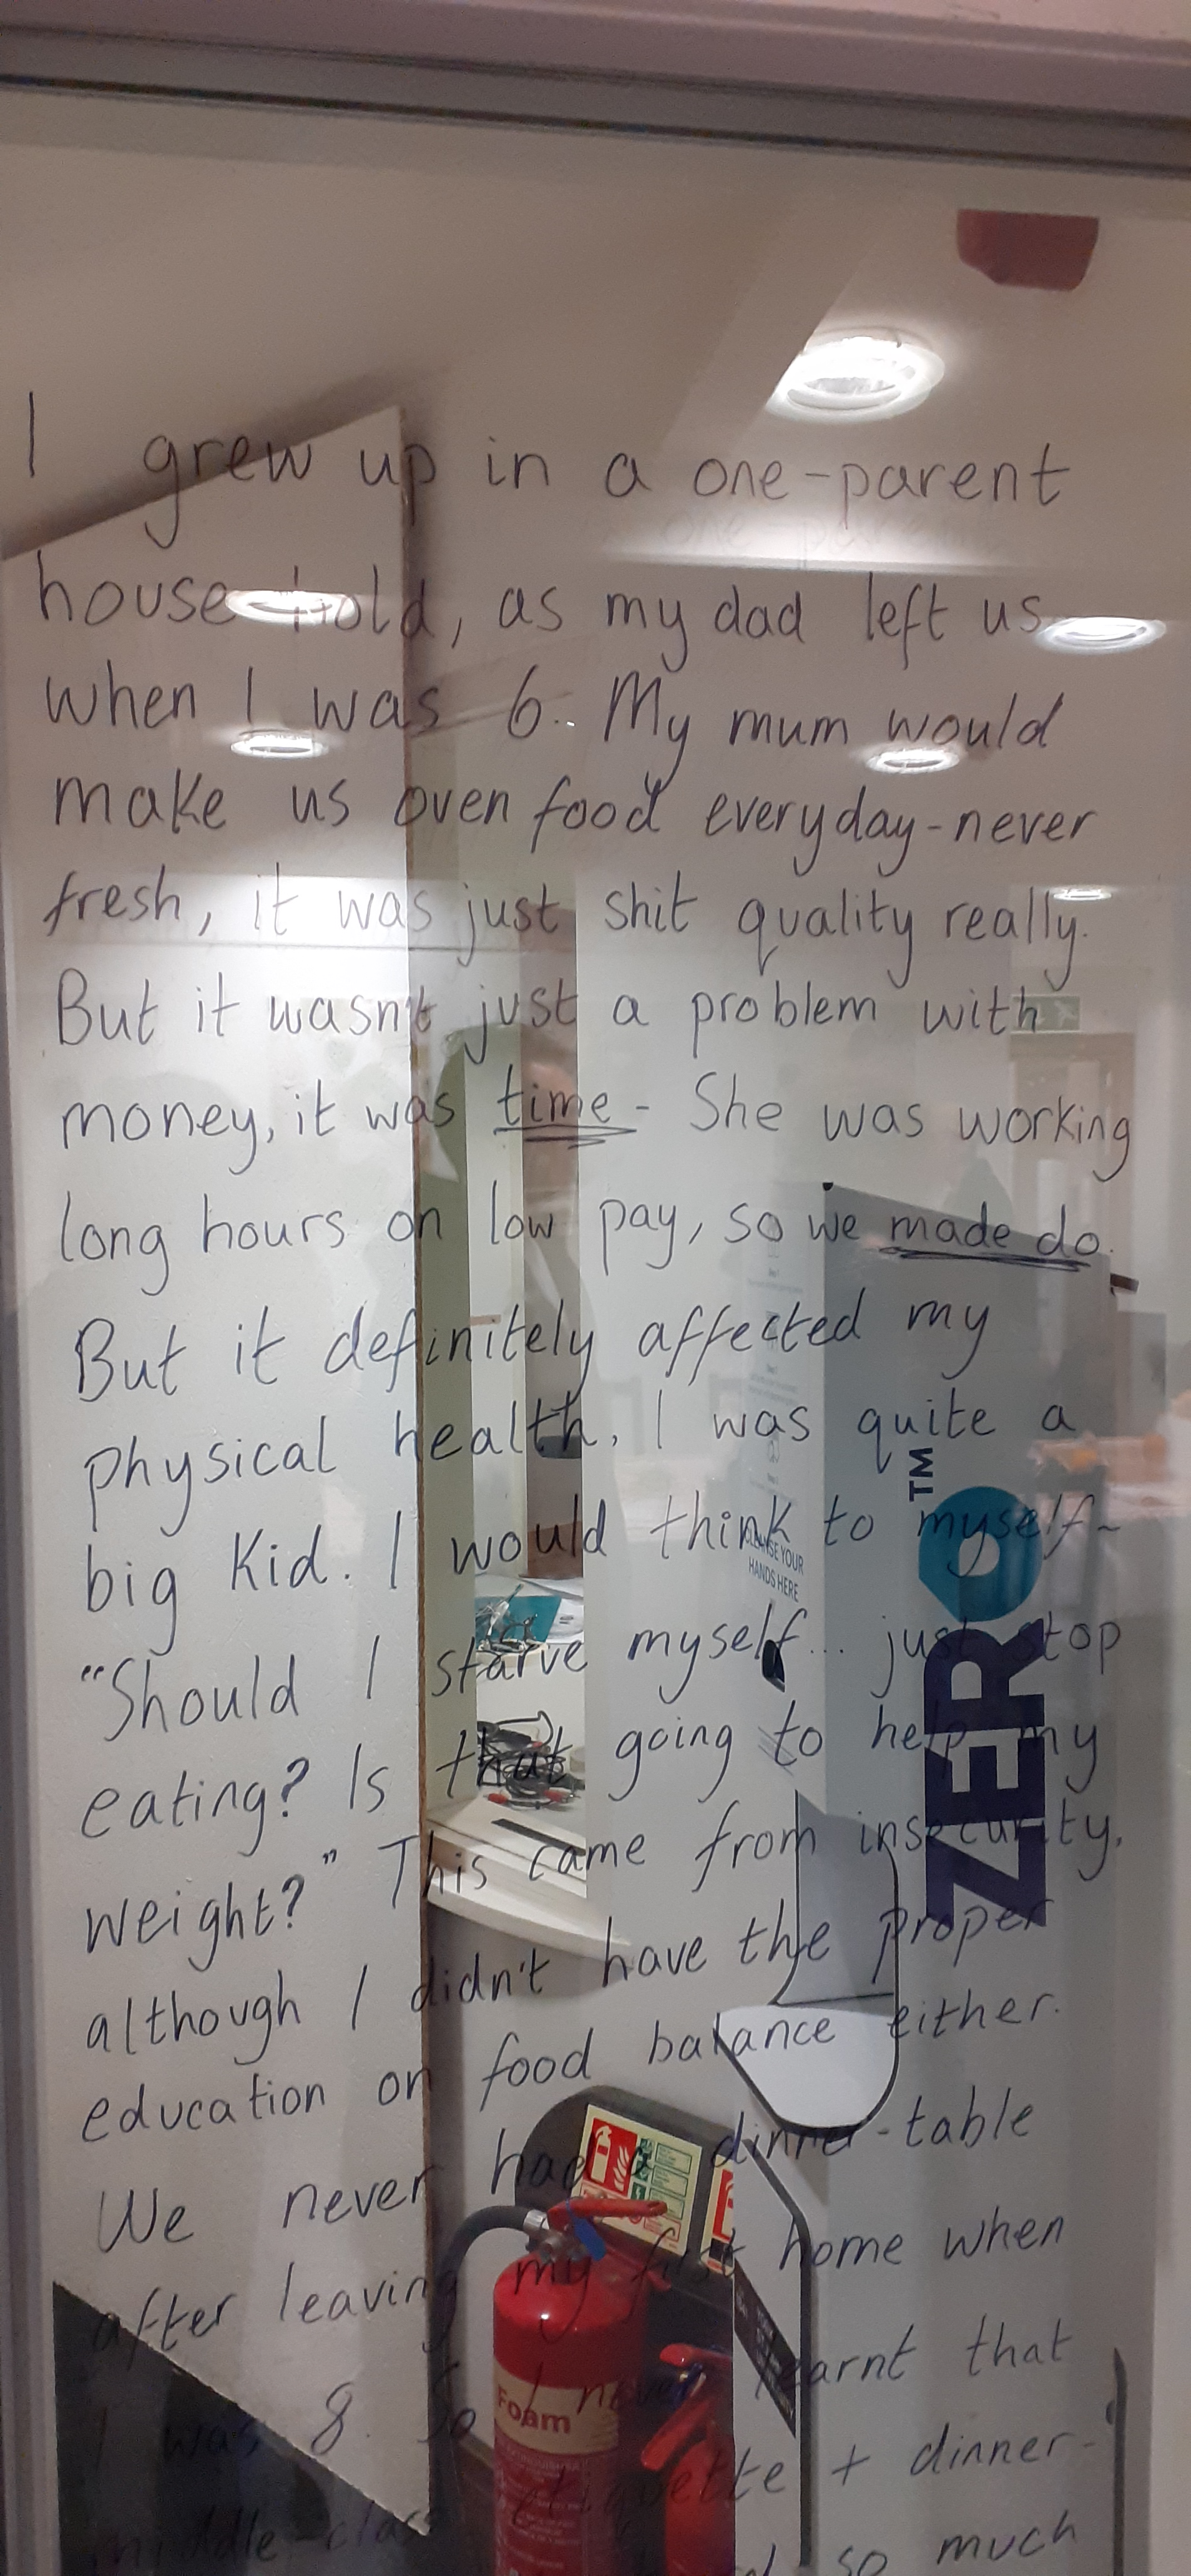 I grew up in a one-parent
household, as my dad left us
when I was 6. My mum would
make us oven food everyday-never
fresh, it was just shit quality really.
But it wasn't just a problem with
money, it was time - She was working
long hours on low pay, so we made do.
But it definitely affected my
physical health, I was quite a
big Kid. I would think to myself~
"Should I starve myself... just stop
eating? Is that going to help my
weight?" This came from insecurity,
although I didn't have the proper
education on food balance either.
We never had a dinner-table
after leaving my first home when
I was 8. So I never learnt that
middle-class etiquette + dinner-
so much
CLEANSE YOUR
HANDS HERE
ZERO™
Foam